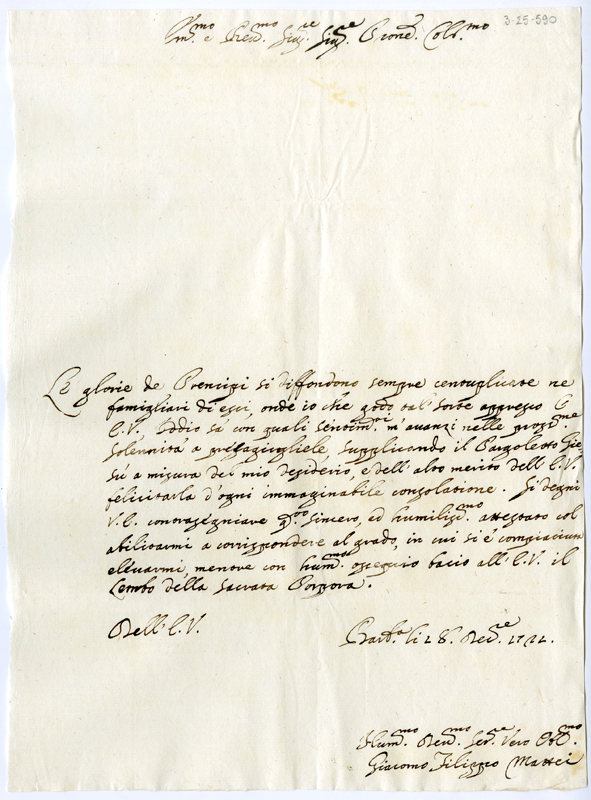 3-25-590
Em.mo e Rev.mo Sig.re Sig.re Prone. Col.mo
Le glorie de Prencipi si diffondono sempre centuplicate ne
famigliari di essi, onde io che godo tal' sorte appresso
E.V. Iddio sà con quali sentim.ti m'avanzi nelle pross.me
Solennità a presagirgliele, supplicando il Pargoletto Gie-
sù a misura del mio desiderio, e dell' alto merito dell' E.V.
felicitarla d'ogni immaginabile consolatione. Si degni
V.E. contrasegniare q.to sincero, ed humiliss.mo attestato col
abilitarmi a corrispondere al grado, in cui si è compiaciuta
elevarmi, mentre con hum.mo ossequio bacio all' E.V. il
Lembo della Sacrata Porpora.
Dell' E.V.
li 18. Xbre
Hum.mo Dev.mo Ser.re Vero Obl.mo
Giacomo Filippo Mattei